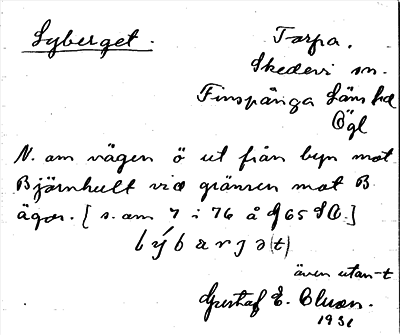 Lyberget.
Tarpa.
Skedevi sn.
Finspånga Läns hd
Ögl
N. om vägen ö ut från byn mot
Björnhult vid gränsen mot B
ägor. [s. om 7 i 76 å J 65 SO.]
lýbarjə(t)
även utan -t
Gustaf E. Cluson.
1931